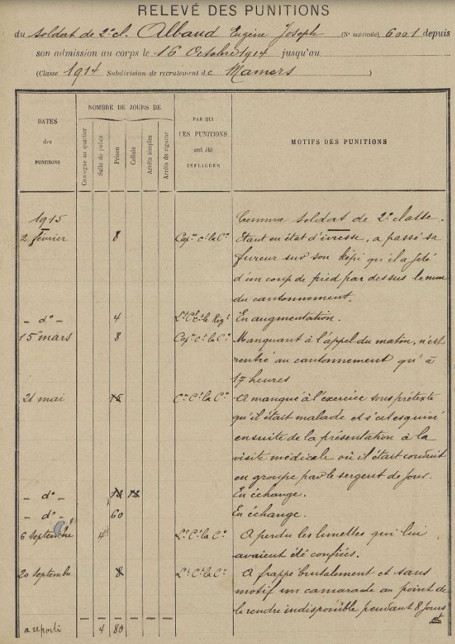 RELEVÉ DES PUNITIONS
du soldat de 2e cl. Albaud Eugène Joseph (No matricule) 6001 depuis
son admission au corps le 16 Octobre 1914 jusqu'au
(Classe 1914 Subdivision de recrutement de Mamers )
DATES des PUNITIONS
NOMBRE DE JOURS DE
Consigne au quartier
Salle de police
Prison
Cellule
Arrêts simples
Arrêts de rigueur
PAR QUI LES PUNITIONS ont été INFLIGÉES
MOTIFS DES PUNITIONS
1915
Comme soldat de 2e classe.
2 février 8 Capne Ct la Cie Etant en état d'ivresse, a passé sa
fureur sur son képi qu'il a jeté
d'un coup de pied par dessus le mur
du cantonnement.
- do - 4 Lt Cl Ct le Régt En augmentation.
15 mars 8 Capne Ct la Cie Manquant à l'appel du matin, n'est
rentré au cantonnement qu'à
17 heures
21 mai 15 Ct la Cie A manqué à l'exercice sous prétexte
qu'il était malade et s'est esquivé
ensuite de la présentation à la
visite médicale où il était conduit
en groupe par le sergent de jour.
- do - En échange.
- do - 60 En échange.
6 septembre 4 Lt Ct la Cie A perdu les lunettes qui lui
avaient été confiées.
20 septembre 8 Lt Ct la Cie A frappé brutalement et sans
motif un camarade au point de
le rendre indisponible pendant 8 jours
a reporter 4 80